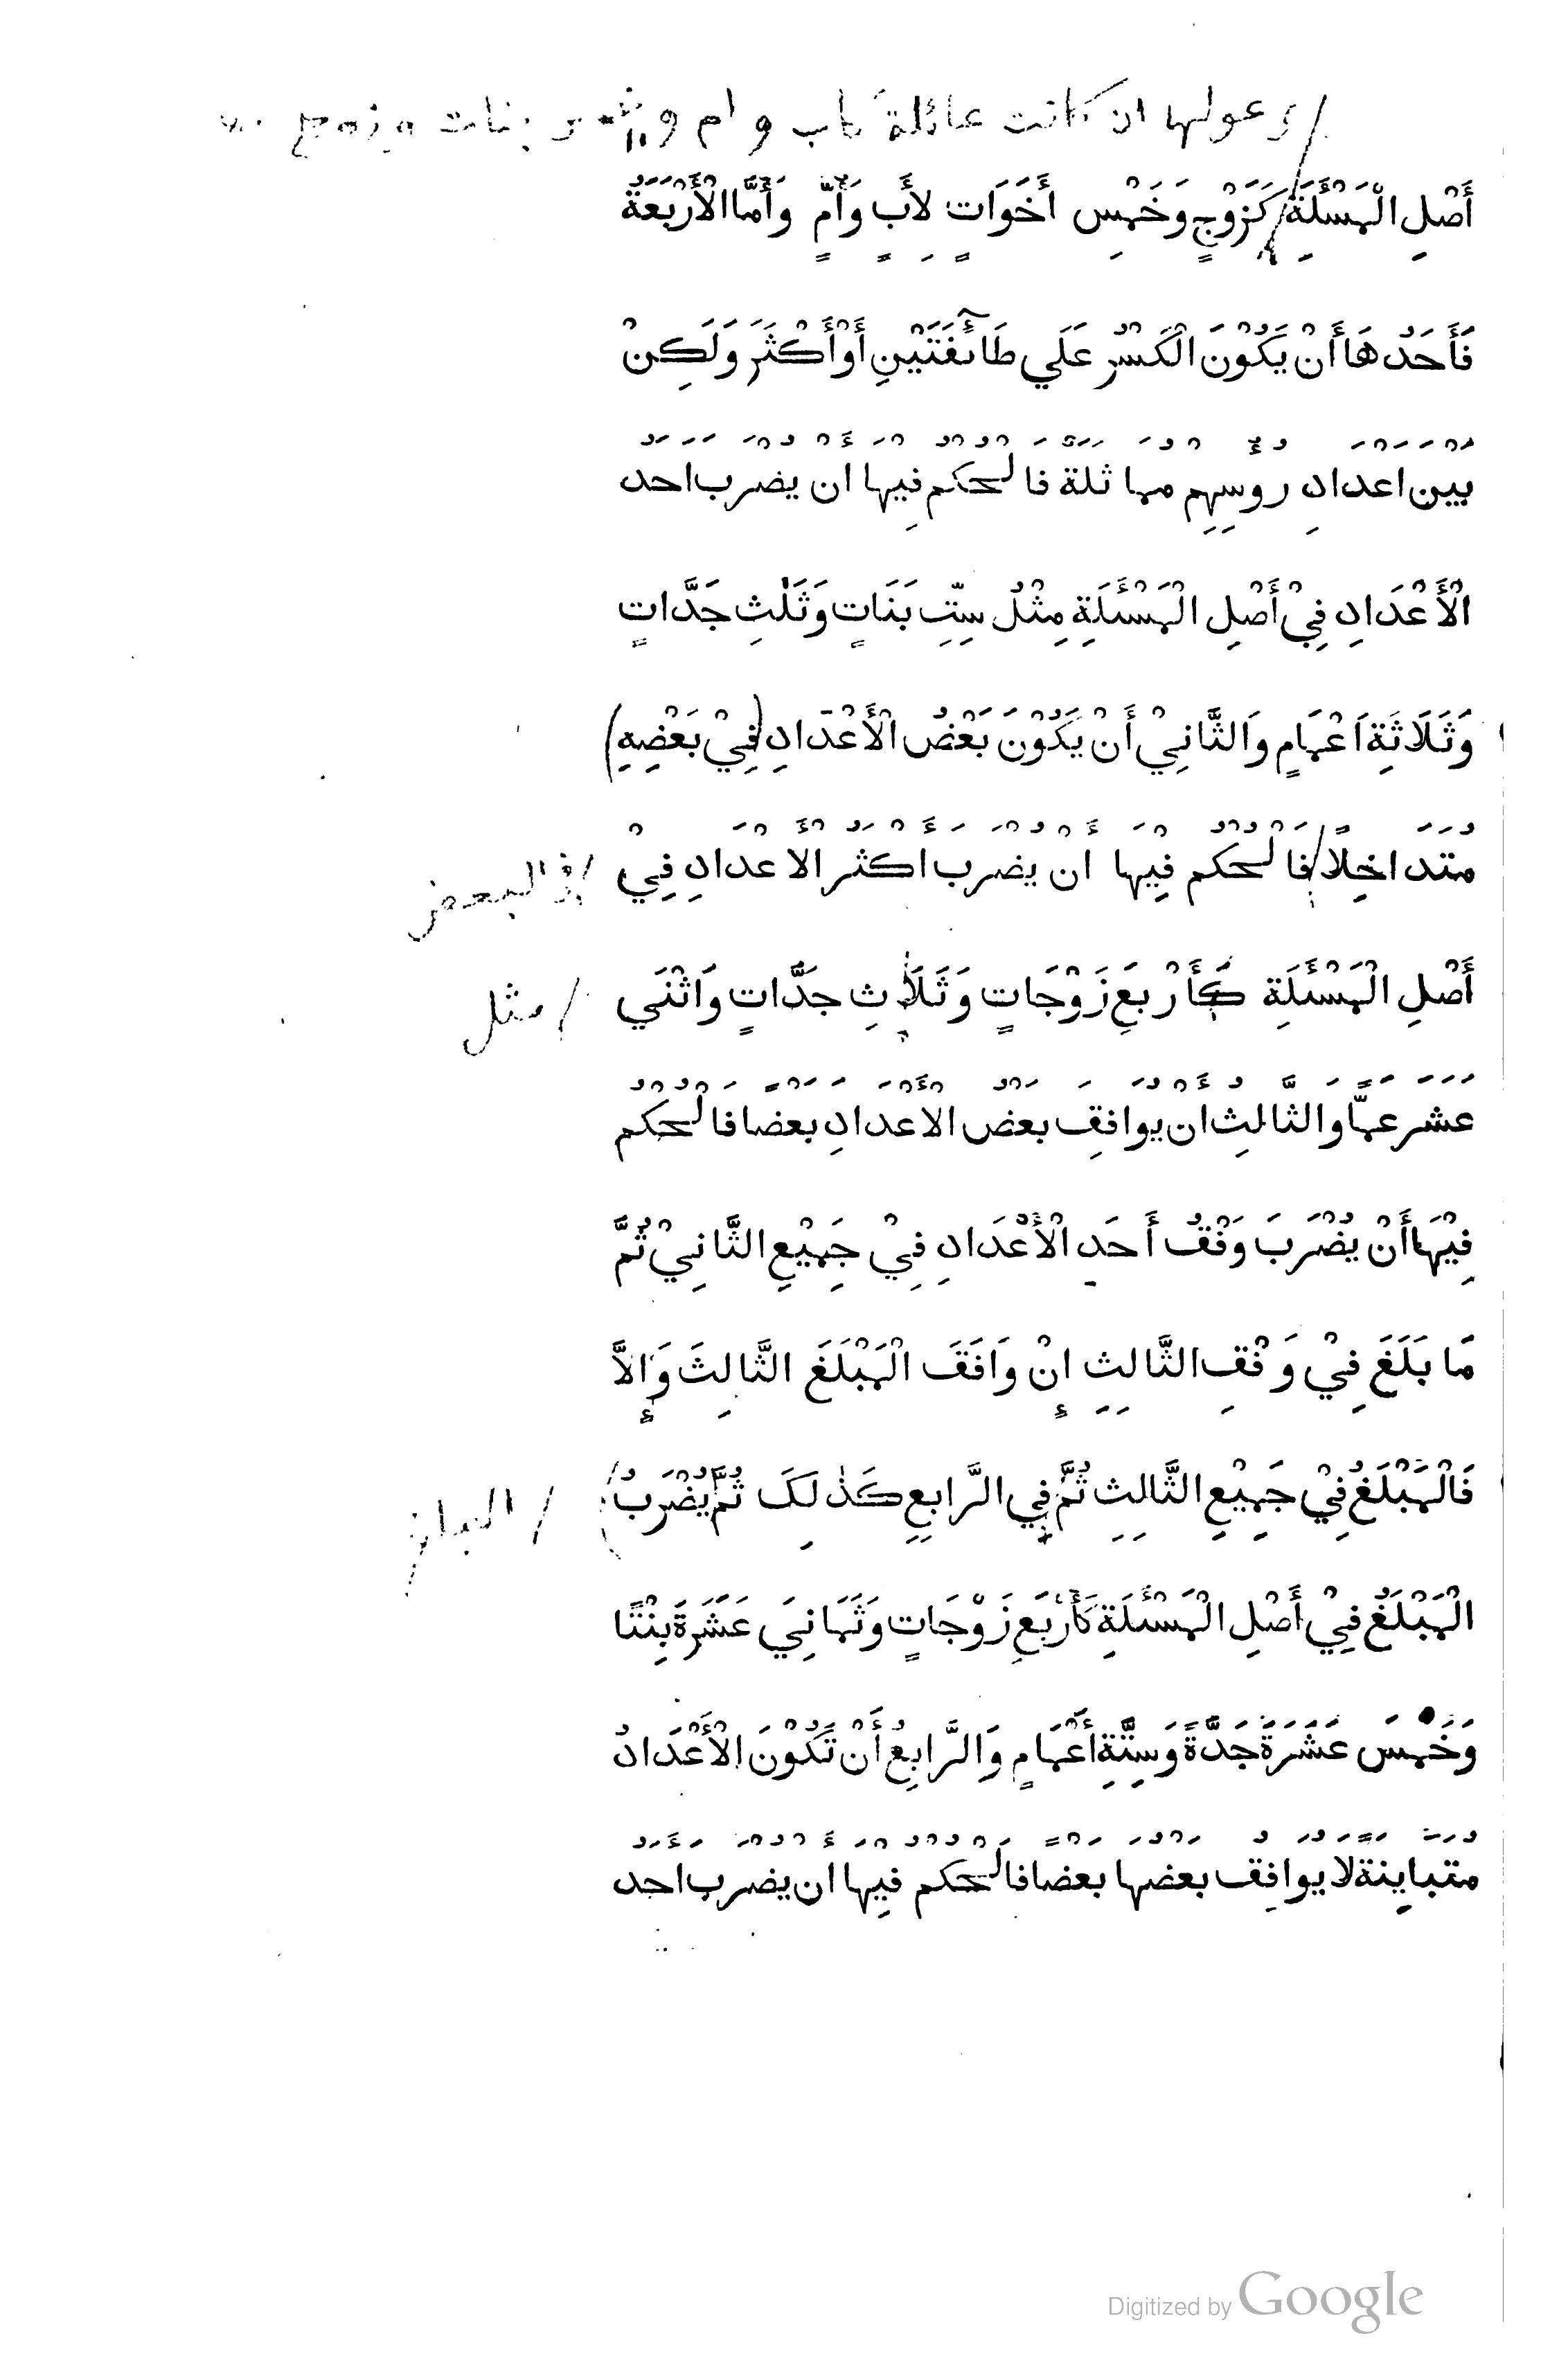 / وعولها ان كانت عائلة كاب وام و بنات و زوج
أَصْلِ الْمَسْئَلَةِ / كَزَوْجٍ وَخَمْسِ أَخَوَاتٍ لِأَبٍ وَأُمٍّ وَأَمَّا الْأَرْبَعَةُ
فَأَحَدُهَا أَنْ يَكُوْنَ الْكَسْرُ عَلَي طَائِفَتَيْنِ أَوْ أَكْثَرَ وَلَكِنْ
بَيْنَ أَعْدَادِ رُؤُسِهِمْ مُمَاثَلَةٌ فَالْحُكْمُ فِيْهَا أَنْ يُضْرَبَ أَحَدُ
الْأَعْدَادِ فِيْ أَصْلِ الْمَسْئَلَةِ مِثْلُ سِتِّ بَنَاتٍ وَثَلٰثِ جَدَّاتٍ
وَثَلَاثَةِ اَعْمَامٍ وَالثَّانِيْ أَنْ يَكُوْنَ بَعْضُ الْأَعْدَادِ (فِيْ بَعْضِهِ)
مُتَدَاخِلًا / فَالْحُكْمُ فِيْهَا أَنْ يُضْرَبَ أَكْثَرُ الْأَعْدَادِ فِيْ
/ في البعض
أَصْلِ الْمَسْئَلَةِ كَأَرْبَعِ زَوْجَاتٍ وَثَلَاثِ جَدَّاتٍ وَاثْنَي
/ مثل
عَشَرَ عَمًّا وَالثَّالِثُ أَنْ يُوَافِقَ بَعْضُ الْأَعْدَادِ بَعْضًا فَالْحُكْمُ
فِيْهَا أَنْ يُضْرَبَ وَفْقُ أَحَدِ الْأَعْدَادِ فِيْ جَمِيْعِ الثَّانِيْ ثُمَّ
مَا بَلَغَ فِيْ وَفْقِ الثَّالِثِ إِنْ وَافَقَ الْمَبْلَغَ الثَّالِثَ وَإِلَّا
فَالْمَبْلَغُ فِيْ جَمِيْعِ الثَّالِثِ ثُمَّ فِي الرَّابِعِ كَذٰلِكَ ثُمَّ يُضْرَبُ
الْمَبْلَغُ فِيْ أَصْلِ الْمَسْئَلَةِ كَأَرْبَعِ زَوْجَاتٍ وَثَمَانِيَ عَشَرَةَ بِنْتًا
وَخَمْسَ عَشَرَةَ جَدَّةً وَسِتَّةِ أَعْمَامٍ وَالرَّابِعُ أَنْ تَكُوْنَ الْأَعْدَادُ
مُتَبَايِنَةً لَا يُوَافِقُ بَعْضُهَا بَعْضًا فَالْحُكْمُ فِيْهَا أَنْ يُضْرَبَ أَحَدُ
Digitized by Google